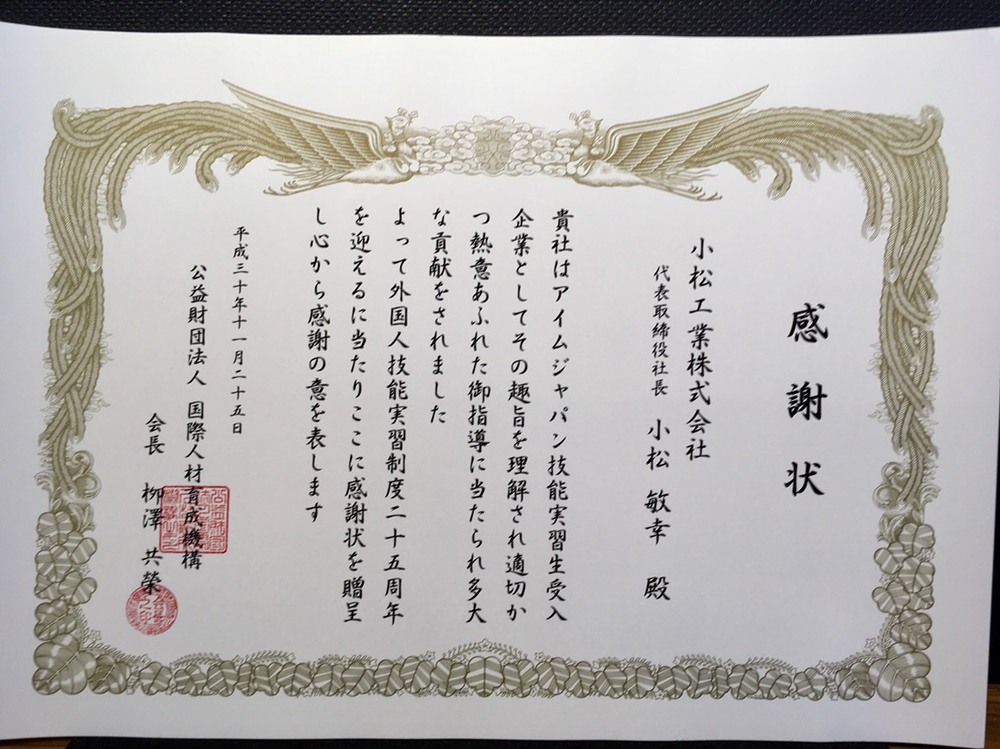 感謝状
小松工業株式会社
代表取締役社長 小松 敏幸 殿
貴社はアイムジャパン技能実習生受入
企業としてその趣旨を理解され適切か
つ熱意あふれた御指導に当たられ多大
な貢献をされました
よって外国人技能実習制度二十五周年
を迎えるに当たりここに感謝状を贈呈
し心から感謝の意を表します
平成三十年十一月二十五日
公益財団法人 国際人材育成機構
会長 柳澤 共榮